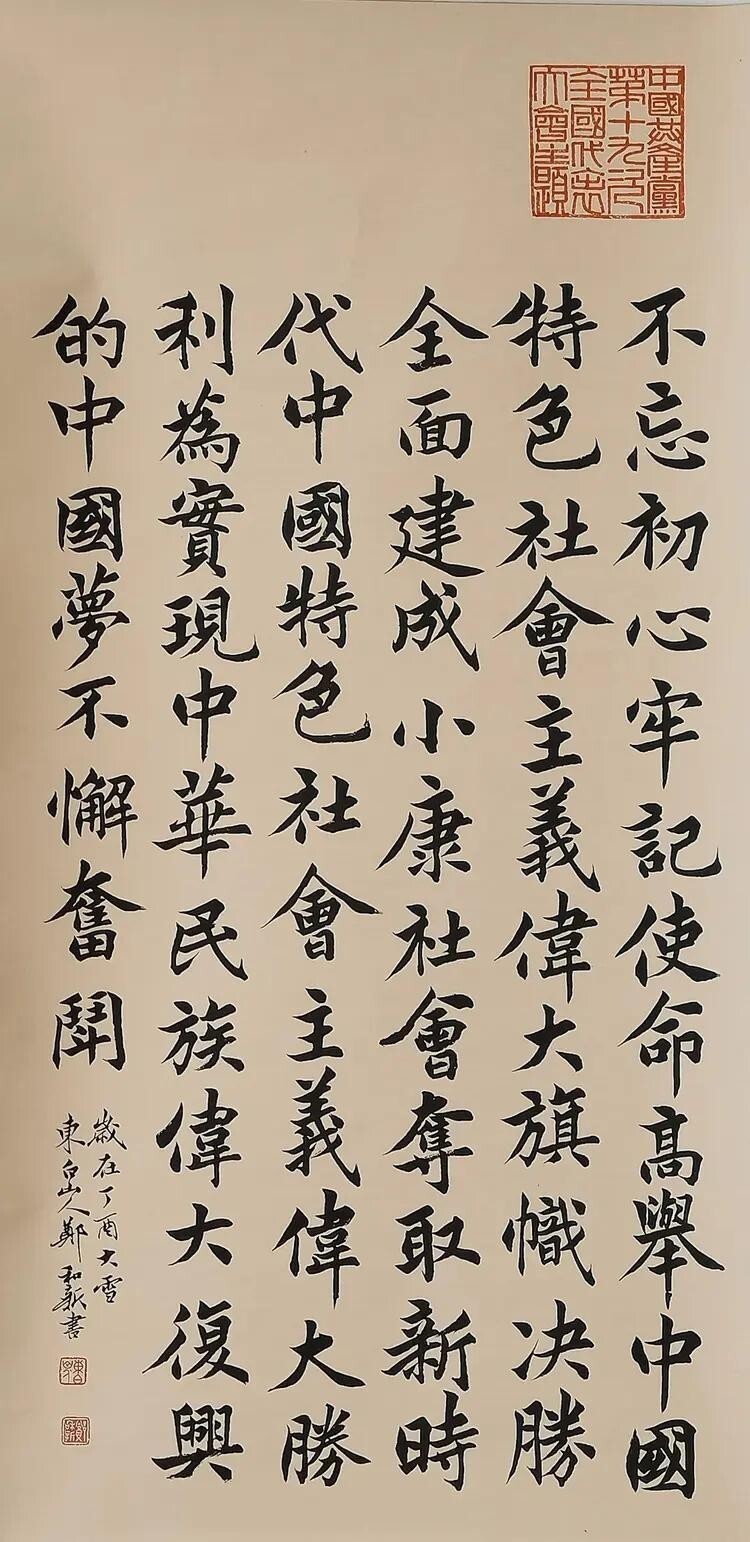 中國共產黨
第十九次
全國代表
大會主題
不忘初心牢記使命高舉中國
特色社會主義偉大旗幟决勝
全面建成小康社會奪取新時
代中國特色社會主義偉大勝
利為實現中華民族偉大復興
的中國夢不懈奮鬪
歲在丁酉大雪
東白山人鄭和新書